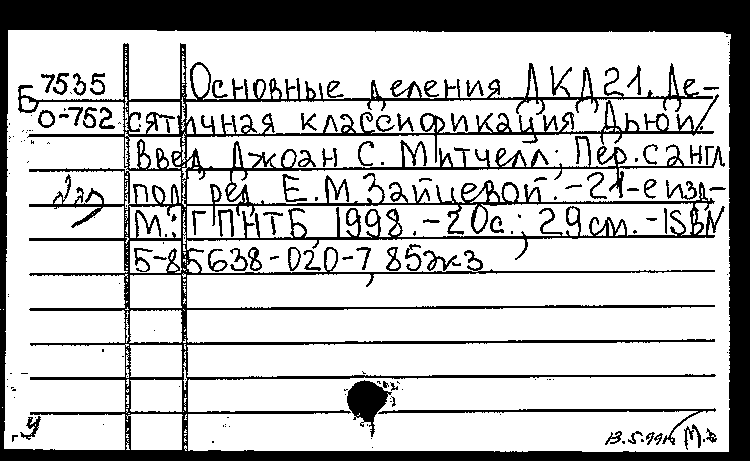 Б 7535 Основные деления ДКД21. Де-
0-752 сятичная классификация Дьюи/
Введ. Джоан С. Митчелл; Пер. с англ
под ред. Е.М. Зайцевой. - 21-е изд.-
М.: ГПНТБ, 1998. - 20с.; 29см. - ISBN
5-85638-020-7, 85экз.
У
13.5.99г